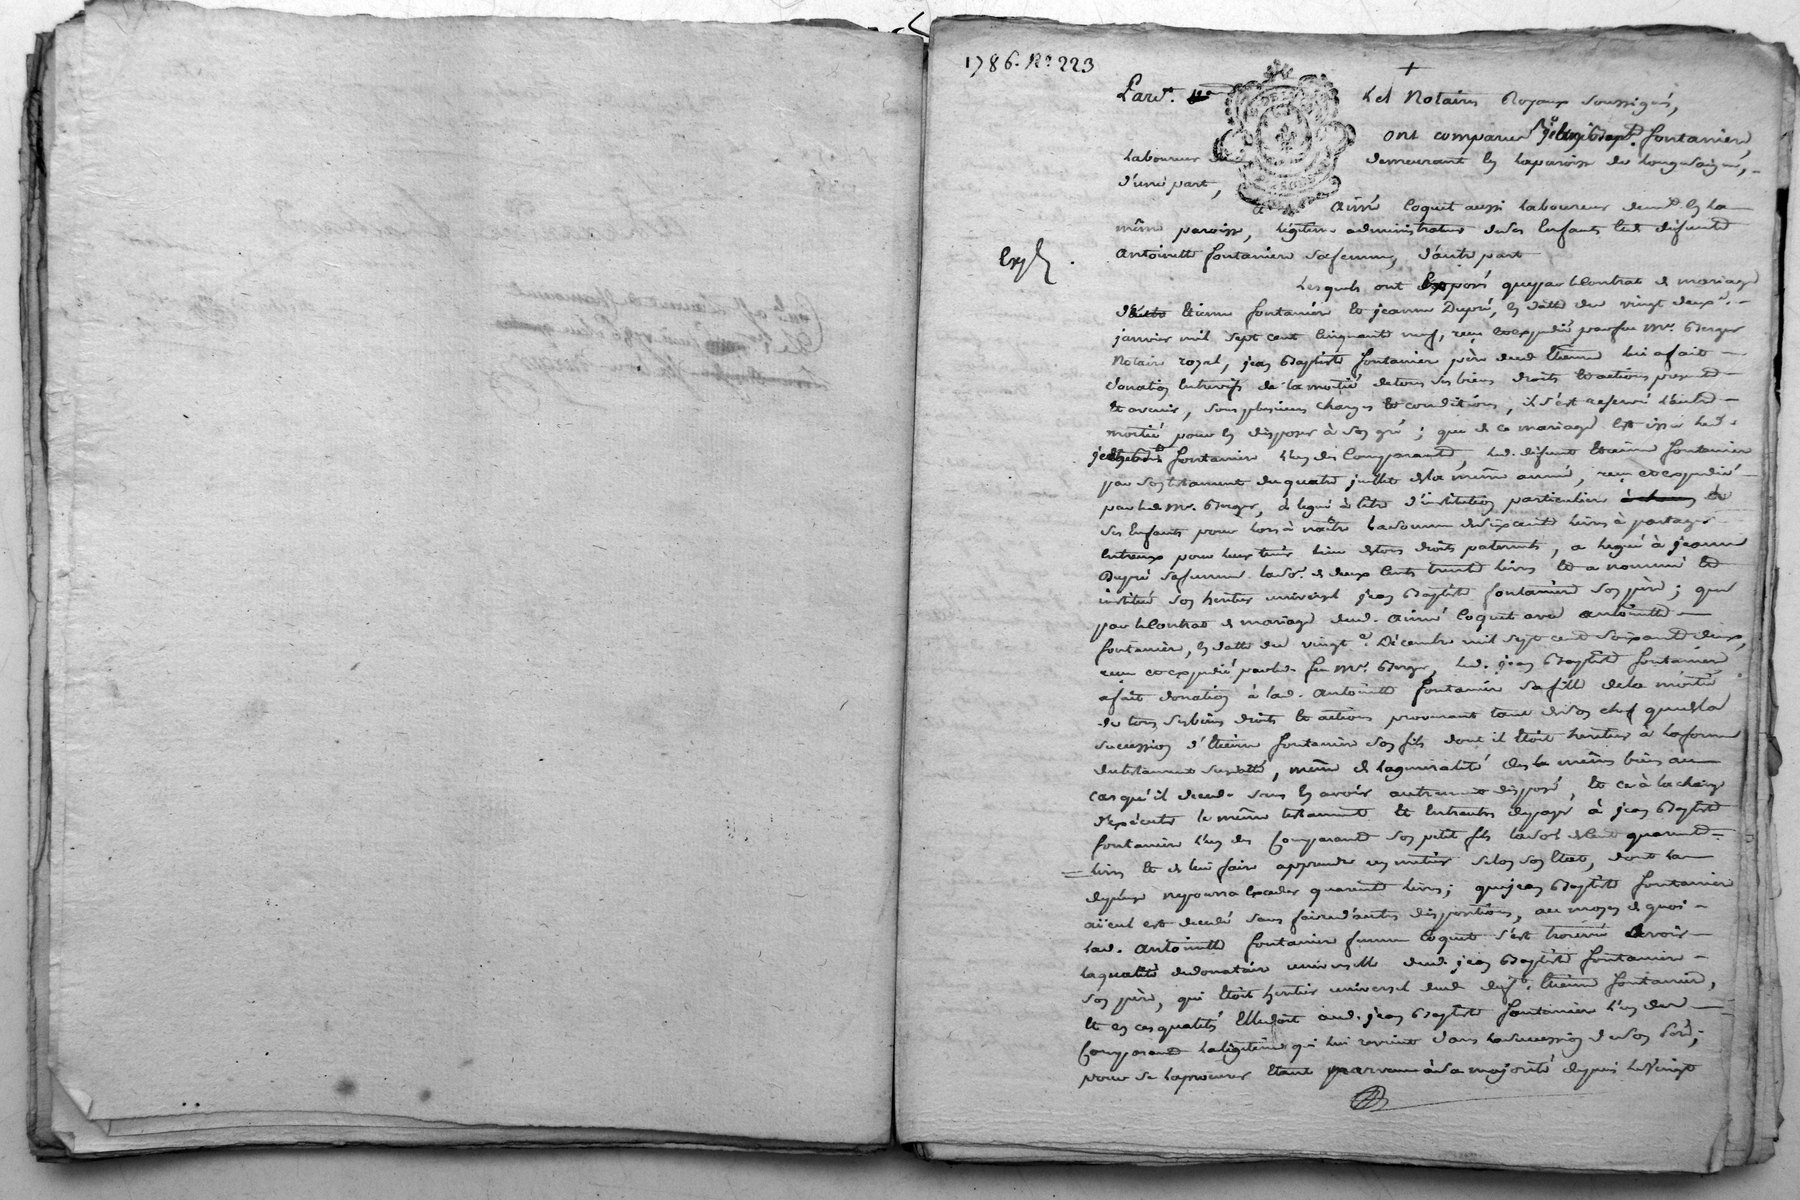 1786. No. 223
+
Pard.t les Notaires Royaux soussignés,
ont comparu fontanier,
laboureur demeurant en la paroisse de Longesaigne,
d'une part,
Aimé Coquet aussi laboureur demt. en la
même paroisse, légitime administrateur de ses enfants et de défunte
Antoinette fontanier sa femme, d'autre part
Exp.
Lesquels ont Exposé que par le Contrat de mariage
d'Etienne fontanier et jeanne Dupré, en datte du vingt deux
janvier mil sept cent cinquante neuf, reçu et expédié par feu Me. Berger
Notaire royal, jean Baptiste fontanier père dud. Etienne lui a fait
donation entrevifs de la moitié de tous ses biens droits et actions présents
et avenir, sous plusieurs charges et conditions, il s'est réservé l'autre
moitié pour en disposer à son gré ; que de ce mariage est issu led.
fontanier l'un des Comparants, led. défunt Etienne fontanier
par son testament du quatre juillet de la même année, reçu et expédié
par led. Me. Berger, a légué à titre d'institution particulière à
ses enfants pour lors à naître la somme de six cents livres à partager
entreux pour leur tenir lieu de tous droits paternels, a légué à jeanne
Dupré sa femme la so.e de deux cents trente livres et a nommé et
institué son héritier universel jean Baptiste fontanier son père ; que
par le Contrat de mariage dud. Aimé Coquet avec Antoinette
fontanier, en datte du vingt Décembre mil sept cent soixante deux,
reçu et expédié par led. feu Me. Berger, led. jean Baptiste fontanier
a fait donation à lad. Antoinette fontanier sa fille de la moitié
de tous ses biens droits et actions provenant tant de son chef que de la
succession d'Etienne fontanier son fils dont il étoit héritier à la forme
du testament susdatté, même de la généralité des mêmes biens au
cas qu'il décede sans en avoir autrement disposé, et ce à la charge
d'exécuter le même testament et entrautres de payer à jean Baptiste
fontanier l'un des Comparants son petit fils la so.e de cent quarante
livres et de lui faire apprendre un métier selon son état, dont la
dépense ne pourra excéder quarante livres ; que jean Baptiste fontanier
aïeul est décedé sans faire d'autres dispositions, au moyen de quoi
lad. Antoinette fontanier femme Coquet s'est trouvée avoir
la qualité de donataire universelle dud. jean Baptiste fontanier
son père, qui étoit héritier universel dud. déft. Etienne fontanier,
et en ces qualités Elle doit aud. jean Baptiste fontanier l'un des
Comparants la légitime qui lui revient dans la succession de son
pour se la procurer étant parvenu à sa majorité depuis le vingt